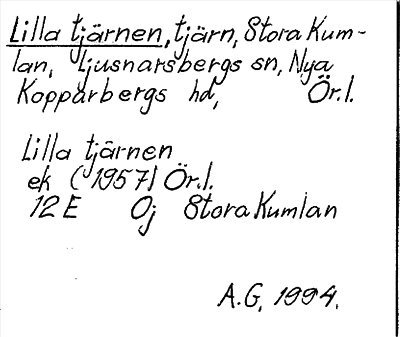 Lilla tjärnen, tjärn, Stora Kum-
lan, Ljusnarsbergs sn, Nya
Kopparbergs hd, Ör.l.
Lilla tjärnen
ek (1957) Ör.l.
12E Oj Stora Kumlan
A.G. 1994.